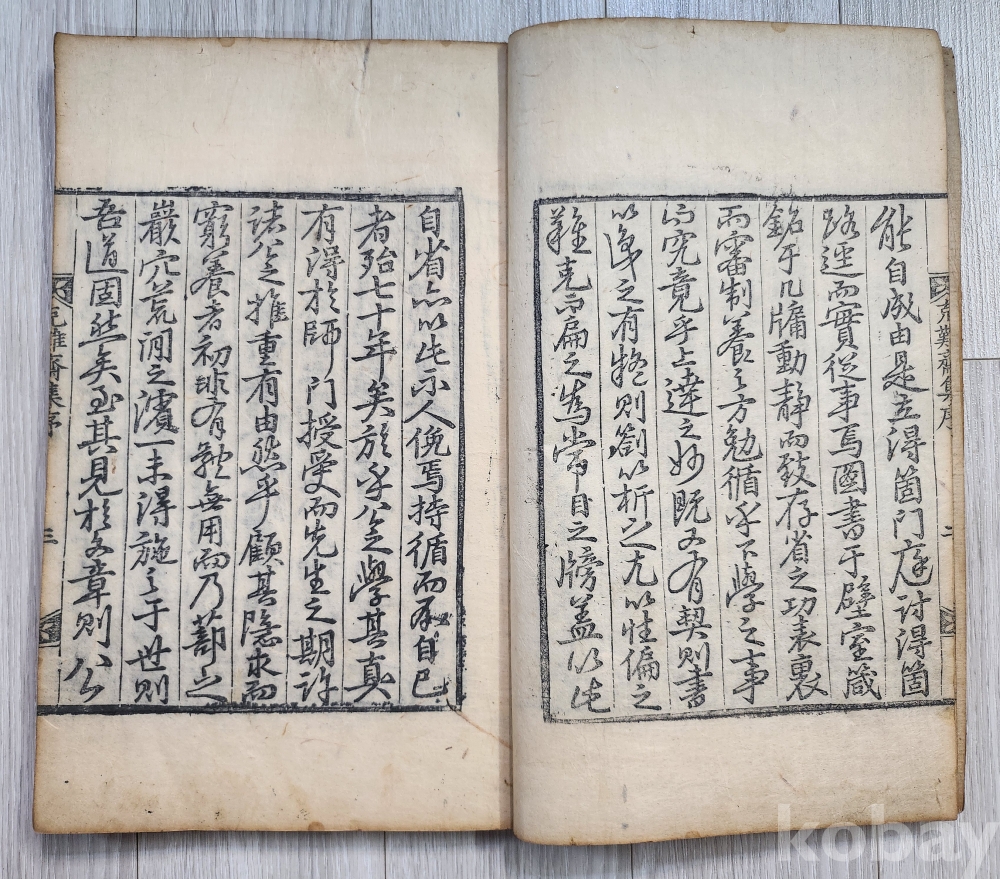 克難齋集序
二
能自成由是立得箇門庭討得箇
路逕而實從事焉圖書于壁室箴
銘于几牖動靜而致存省之功表裏
而審制養之方勉循乎下學之事
而究竟乎上達之妙既又有契則書
以識之有疑則劄以析之尤以性偏之
難克而扁之爲常目之牓蓋以此
自省亦以此示人俛焉持循而自已
者殆七十年矣於乎公之學其真
有得於師門授受而先生之期許
諸公之推重有由然乎顧其隱求而
窮養者初非有歉無用而乃蔀之
巖穴荒澗之濱一未得施之于世則
吾道固然矣至其見於文章則公
克難齋集序
三
kobay